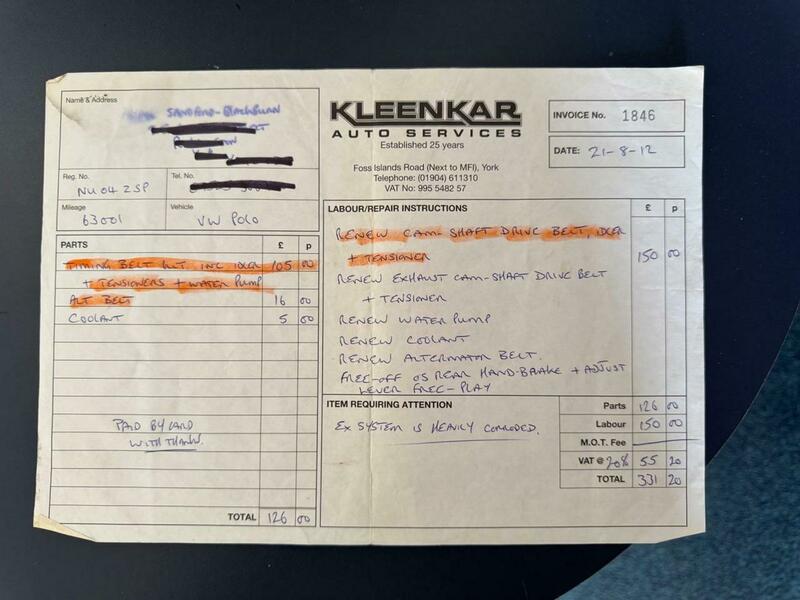 Name & Address
SANDFORD-BLACKBURN
Reg. No.
NU04 ZSP
Tel. No.
Mileage
63001
Vehicle
VW POLO
PARTS £ p
TIMING BELT KIT INC IDLER 105 00
+ TENSIONERS + WATER PUMP
ALT BELT 16 00
COOLANT 5 00
PAID BY CARD
WITH THANKS.
TOTAL 126 00
KLEENKAR
AUTO SERVICES
Established 25 years
Foss Islands Road (Next to MFI), York
Telephone: (01904) 611310
VAT No: 995 5482 57
INVOICE No. 1846
DATE: 21-8-12
LABOUR/REPAIR INSTRUCTIONS £ p
RENEW CAM-SHAFT DRIVE BELT, IDLER
+ TENSIONER 150 00
RENEW EXHAUST CAM-SHAFT DRIVE BELT
+ TENSIONER
RENEW WATER PUMP
RENEW COOLANT
RENEW ALTERNATOR BELT.
FREE-OFF OS REAR HAND-BRAKE + ADJUST
LEVER FREE-PLAY
ITEM REQUIRING ATTENTION
EX SYSTEM IS HEAVILY CORRODED.
Parts 126 00
Labour 150 00
M.O.T. Fee
VAT @ 20% 55 20
TOTAL 331 20